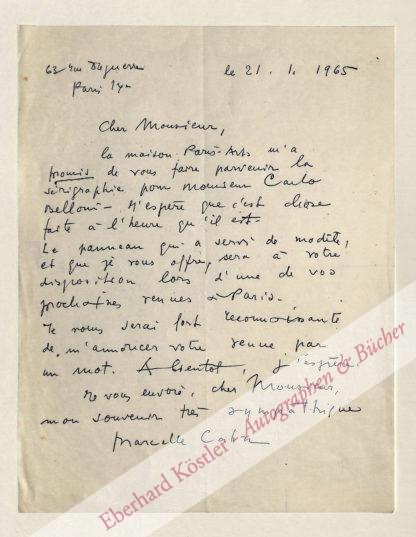 63 rue Daguerre
Paris 14e
le 21. 1. 1965
Cher Monsieur,
la maison Paris-Arts m'a
promis de vous faire parvenir la
sérigraphie pour Monsieur Carlo
Belloni - J'espère que c'est chose
faite à l'heure qu'il est.
Le panneau qui a servi de modèle,
et que je vous offre, sera à votre
disposition lors d'une de vos
prochaines venues à Paris.
Je vous serai fort reconnaissante
de m'annoncer votre venue par
un mot. A bientot, j'espère.
Je vous envoie, cher Monsieur,
mon souvenir très sympathique
Marcelle Cahn
Eberhard Köstler Autographen & Bücher